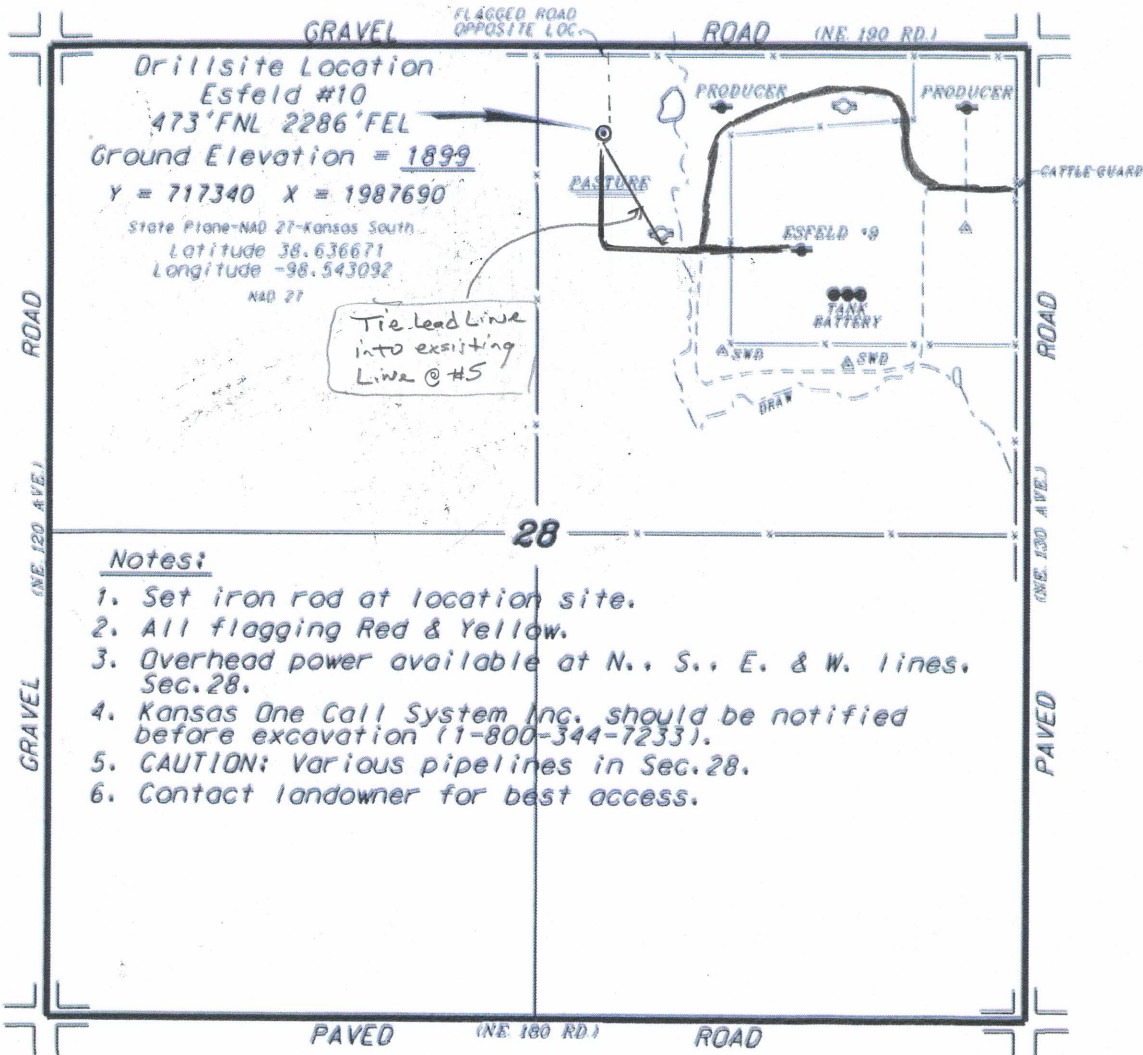 FLAGGED ROAD
OPPOSITE LOC.
GRAVEL ROAD (NE 190 RD.)
Drillsite Location
Esfeld #10
473'FNL 2286'FEL
Ground Elevation = 1899
Y = 717340 X = 1987690
State Plane-NAD 27-Kansas South
Latitude 38.636671
Longitude -98.543092
NAD 27
PRODUCER
PRODUCER
CATTLE GUARD
PASTURE
ESFELD #9
TANK
BATTERY
SWD
SWD
DRAW
Tie Lead Line
into exsisting
Line @ #5
ROAD
(NE 120 AVE.)
GRAVEL
ROAD
(NE 130 AVE.)
PAVED
28
Notes:
1. Set iron rod at location site.
2. All flagging Red & Yellow.
3. Overhead power available at N., S., E. & W. lines.
Sec.28.
4. Kansas One Call System Inc. should be notified
before excavation (1-800-344-7233).
5. CAUTION: Various pipelines in Sec.28.
6. Contact landowner for best access.
PAVED (NE 180 RD.) ROAD